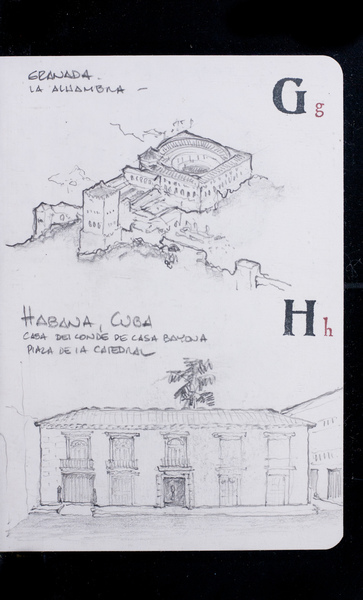 GRANADA.
LA ALHAMBRA -
G g
HABANA, CUBA
CASA DEL CONDE DE CASA BAYONA
PLAZA DE LA CATEDRAL
H h